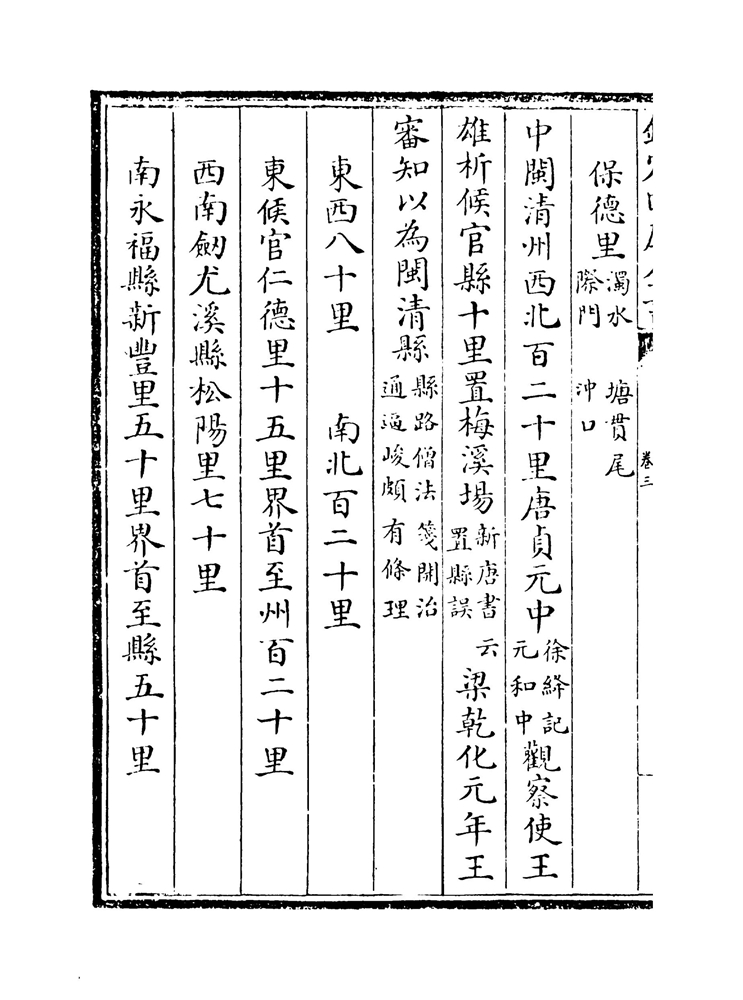 卷三
保德里濁水際門　塘貫尾沖口
中閩清州西北百二十里唐貞元中徐繹記元和中觀察使王
雄析候官縣十里置梅溪場新唐書云置縣誤梁乾化元年王
審知以為閩清縣縣路僧法箋開治通逼峻頗有條理
東西八十里　南北百二十里
東候官仁德里十五里界首至州百二十里
西南劒尤溪縣松陽里七十里
南永福縣新豐里五十里界首至縣五十里